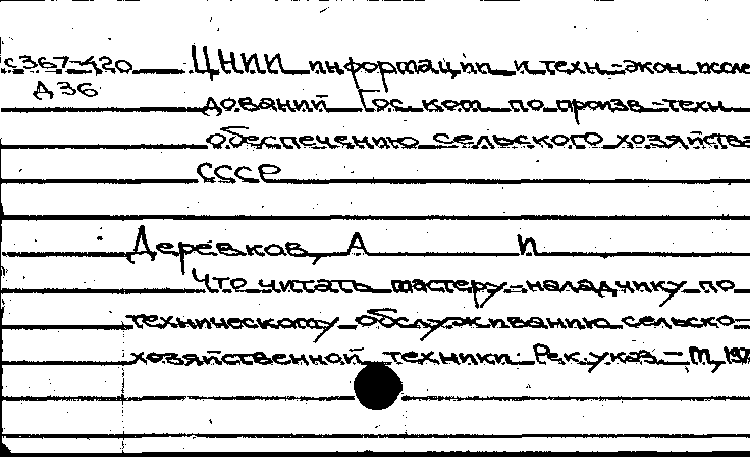 с367-420 ЦНИИ информации и техн.-экон. иссле
Д36 дований Гос. ком. по произв.-техн.
обеспечению сельского хозяйства
СССР
Деревков, А П
Что читать мастеру-наладчику по
техническому обслуживанию сельско-
хозяйственной техники: Рек. указ. - М,